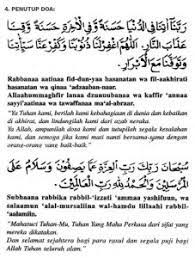 4. PENUTUP DOA:
رَبَّنَا آتِنَا فِي الدُّنْيَا حَسَنَةً وَفِي الْآخِرَةِ حَسَنَةً وَقِنَا
عَذَابَ النَّارِ. اَللّٰهُمَّ اغْفِرْ لَنَا ذُنُوْبَنَا وَكَفِّرْ
عَنَّا سَيِّئَاتِنَا وَتَوَفَّنَا مَعَ الْأَبْرَارِ.
Rabbanaa aatinaa fid-dun-yaa hasanatan wa fil-aakhirati
hasanatan wa qinaa 'adzaaban-naar.
Allaahummaghfir lanaa dzunuubanaa wa kaffir 'annaa
sayyi'aatinaa wa tawaffanaa ma'al-abraar.
"Ya Tuhan kami, berilah kami kebahagiaan di dunia dan kebaikan
di akhirat, dan lindungilah kami dari azab neraka.
Ya Allah, ampunilah dosa kami dan tutupilah segala kesalahan
kami, dan semoga kami mati dalam keadaan bersama-sama
orang yang baik-baik."
سُبْحَانَ رَبِّكَ رَبِّ الْعِزَّةِ عَمَّا يَصِفُوْنَ وَسَلَامٌ عَلَى
الْمُرْسَلِيْنَ وَالْحَمْدُ لِلّٰهِ رَبِّ الْعَالَمِيْنَ
Subhaana rabbika rabbil-'izzati 'ammaa yashifuun, wa
salaamun 'alal-mursaliina wal-hamdu lillaahi rabbil-
'aalamiin.
"Mahasuci Tuhan-Mu, Tuhan Yang Maha Perkasa dari sifat yang
mereka dakwahkan.
Dan selamat sejahtera bagi para rasul dan segala puji bagi
Allah Tuhan seluruh alam."